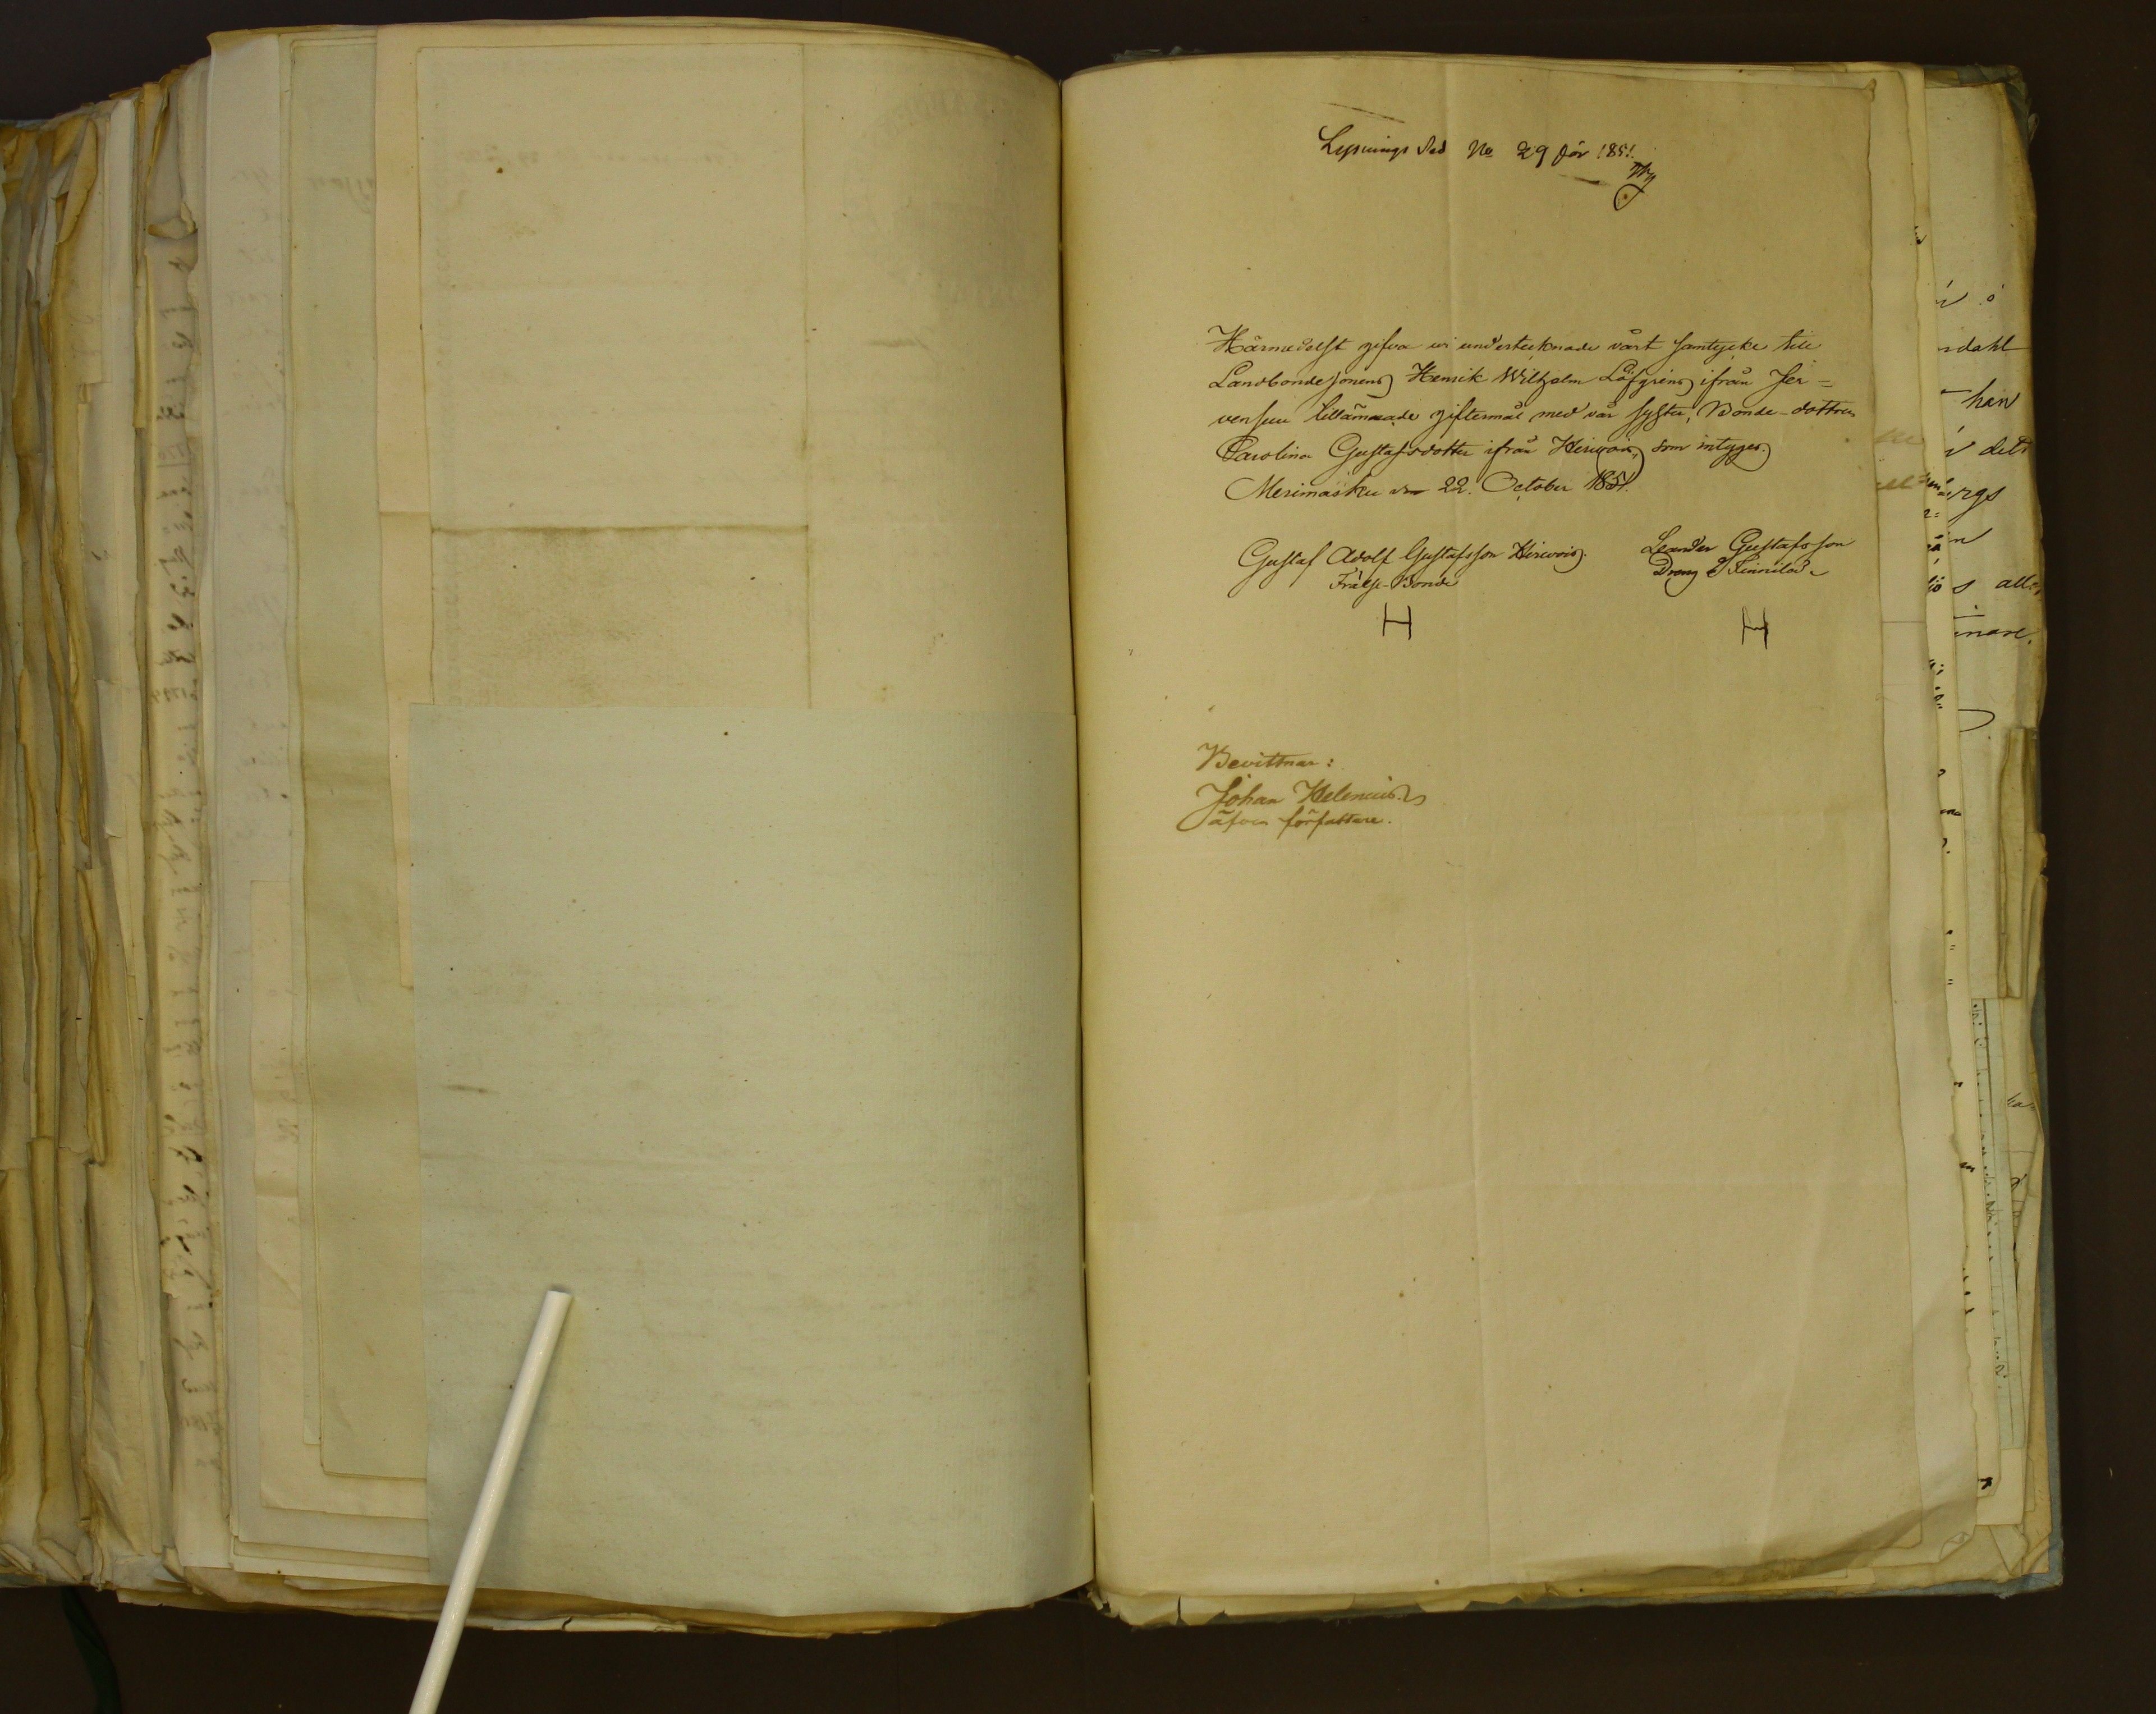 Lysnings Sed No 29 för 1851.
Härmedelst gifva wi undertecknade vårt samtycke till
Landbondesonens Henrik Wilhelm Löfgrens ifrån Jer=
vensuu tillämnade giftermål med vår syster, Bonde-dottren
Carolina Gustafsdotter ifrån Hirvois, som intyges.
Merimasku den 22. October 1851.
Gustaf Adolf Gustafsson Hirvois.
Frälse-Bonde
H
Leander Gustafsson
Dreng
H
Bevittnar:
Johan Helenius
äfven författare.
sdahl
han
det
rgs